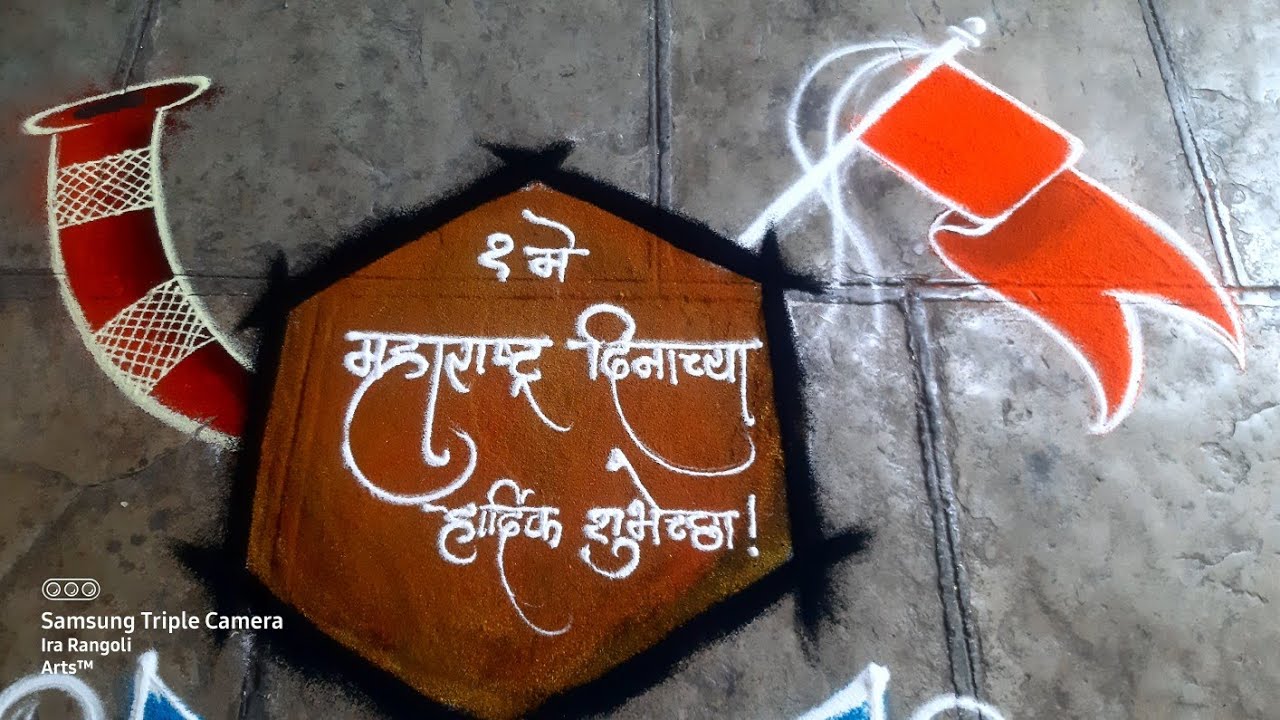 १ मे
महाराष्ट्र दिनाच्या
हार्दिक शुभेच्छा!
Samsung Triple Camera
Ira Rangoli
Arts™